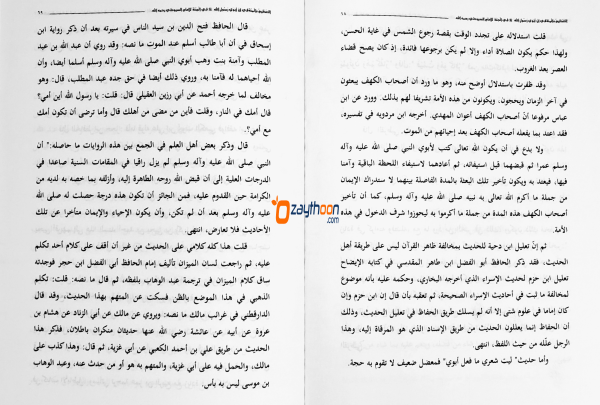 قلت استدلاله على تجدد الوقت بقصة رجوع الشمس في غاية الحسن،
ولهذا حكم بكون الصلاة أداء وإلا لم يكن برجوعها فائدة، إذ كان يصح قضاء
العصر بعد الغروب.
وقد ظفرت باستدلال أوضح منه، وهو ما ورد أن أصحاب الكهف يبعثون
في آخر الزمان ويحجون، ويكونون من هذه الأمة تشريفا لهم بذلك. وورد عن ابن
عباس مرفوعا أن أصحاب الكهف أعوان المهدي. أخرجه ابن مردويه في تفسيره،
فقد اعتد بما يفعله أصحاب الكهف بعد إحيائهم من الموت.
ولا بدع في أن يكون الله تعالى كتب لأبوي النبي صلى الله عليه وآله
وسلم عمرا ثم قبضهما قبل استيفائه، ثم أعادهما لاستيفاء اللحظة الباقية وآمنا
فيها، فيعتد به ويكون تأخير تلك البعثة بالمدة الفاصلة بينهما لاستدراك الإيمان
من جملة ما أكرم الله تعالى به نبيه صلى الله عليه وآله وسلم، كما أن تأخير
أصحاب الكهف هذه المدة من جملة ما أكرموا به ليحوزوا شرف الدخول في هذه
الأمة.
ثم إن تعليل ابن دحية للحديث بمخالفة ظاهر القرآن ليس على طريقة أهل
الحديث، فقد ذكر الحافظ أبو الفضل ابن طاهر المقدسي في كتابه الإيضاح
تعليل ابن حزم لحديث الإسراء الذي أخرجه البخاري، وحكمه عليه بأنه موضوع
لمخالفة ما ثبت في أحاديث الإسراء الصحيحة، ثم تعقبه بأن قال إن ابن حزم وإن
كان إماما في علوم شتى إلا أنه لم يسلك طريق الحفاظ في تعليل الحديث، وذلك
أن الحفاظ إنما يعللون الحديث من طريق الإسناد الذي هو المرقاة إليه، وهذا
الرجل علله من حيث اللفظ، انتهى.
وأما حديث" ليت شعري ما فعل أبوي" فمعضل ضعيف لا تقوم به حجة.
قال الحافظ فتح الدين بن سيد الناس في سيرته بعد أن ذكر رواية ابن
إسحاق في أن أبا طالب أسلم عند الموت ما نصه: وقد روي أن عبد الله بن عبد
المطلب وآمنة بنت وهب أبوي النبي صلى الله عليه وآله وسلم أسلما أيضا، وأن
الله أحياهما له فآمنا به، وروي ذلك أيضا في حق جده عبد المطلب، قال: وهو
مخالف لما خرجه أحمد عن أبي رزين العقيلي قال: قلت: يا رسول الله أين أمي؟
قال أمك في النار، وقلت فأين من مضى من أهلك قال وأما ترضى أن تكون أمك
مع أمي؟.
قال وذكر بعض أهل العلم في الجمع بين هذه الروايات ما حاصله:" أن
النبي صلى الله عليه وآله وسلم لم يزل راقيا في المقامات السنية صاعدا في
الدرجات العلية إلى أن قبض الله روحه الطاهرة إليه، وأزلفه بما خصه به لديه من
الكرامة حين القدوم عليه، فمن الجائز أن تكون هذه درجة حصلت له صلى الله
عليه وآله وسلم بعد أن لم تكن، وأن يكون الإحياء والإيمان متأخرا عن تلك
الأحاديث فلا تعارض، انتهى.
قلت هذا كله كلامي على الحديث من غير أن أقف على كلام أحد تكلم
عليه، ثم راجعت لسان الميزان تأليف إمام الحافظ أبي الفضل ابن حجر فوجدته
ساق كلام الميزان في ترجمة عبد الوهاب بلفظه، ثم قال ما نصه: قلت: تكلم
الذهبي في هذا الموضع بالظن فسكت عن المتهم بهذا الحديث، وقد قال
الدارقطني في غرائب مالك ما نصه: ويروي عن مالك عن أبي الزناد عن هشام بن
عروة عن أبيه عن عائشة رضي الله عنها حديثان منكران باطلان، فذكر هذا
الحديث من طريق علي بن أحمد الكعبي عن أبي غزية، ثم قال: وهذا كذب على
مالك، والحمل فيه على أبي غزية، والمتهم به هو أو من حدث عنه، وعبد الوهاب
بن موسى ليس به بأس.
zaythoon
.com